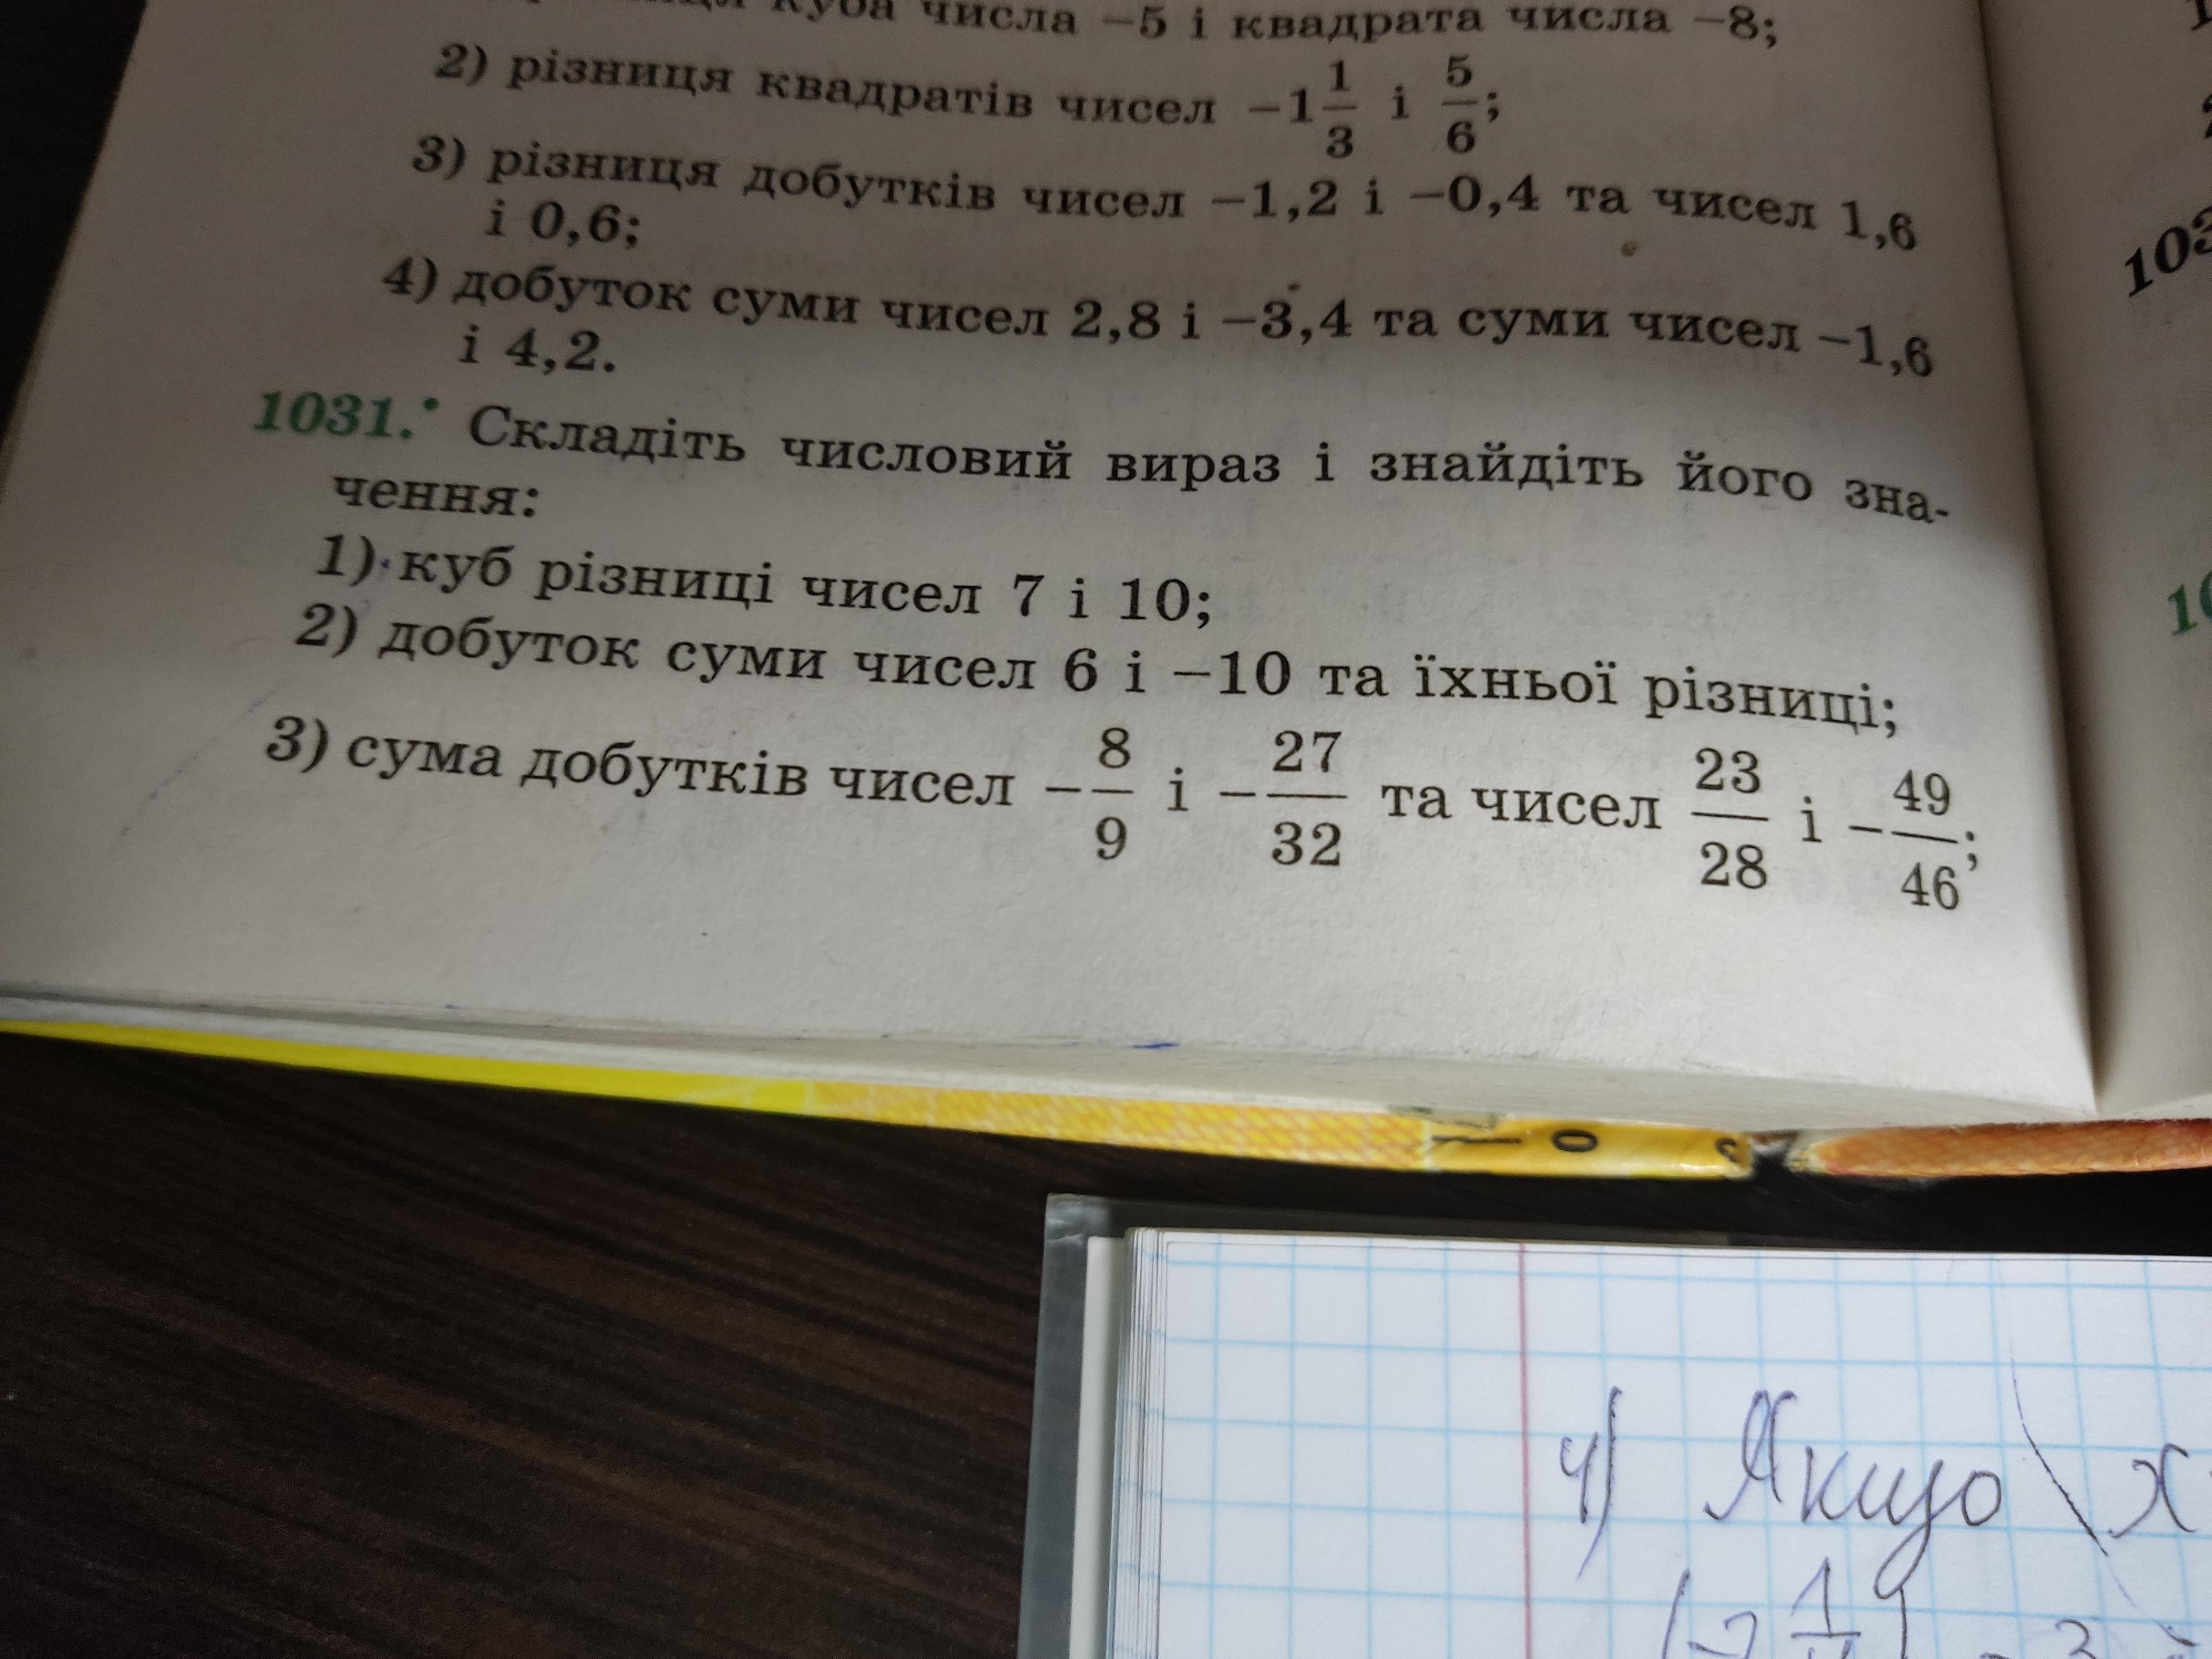 куба числа −5 і квадрата числа −8;
2) різниця квадратів чисел −1 1/3 і 5/6;
3) різниця добутків чисел −1,2 і −0,4 та чисел 1,6
і 0,6;
4) добуток суми чисел 2,8 і −3,4 та суми чисел −1,6
і 4,2.
1031.• Складіть числовий вираз і знайдіть його зна-
чення:
1) куб різниці чисел 7 і 10;
2) добуток суми чисел 6 і −10 та їхньої різниці;
3) сума добутків чисел −8/9 і −27/32 та чисел 23/28 і −49/46;
4) Якщо x